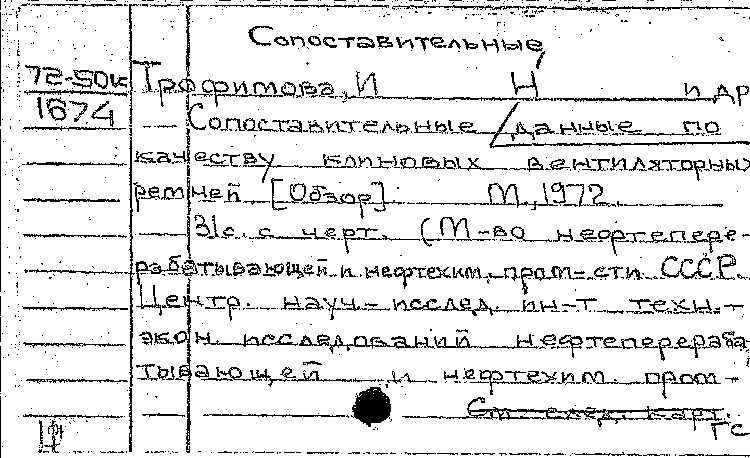 Сопоставительные
72-50к Трофимова, И Н и др
1674 Сопоставительные / данные по
качеству клиновых вентиляторных
ремней [Обзор]. М., 1972.
31с. с черт. (М-во нефтепере-
рабатывающей и нефтехим. пром-сти СССР.
Центр. науч.-исслед. ин-т техн.-
экон. исследований нефтеперераба
тывающей и нефтехим. пром-
См след. карт.
ГС